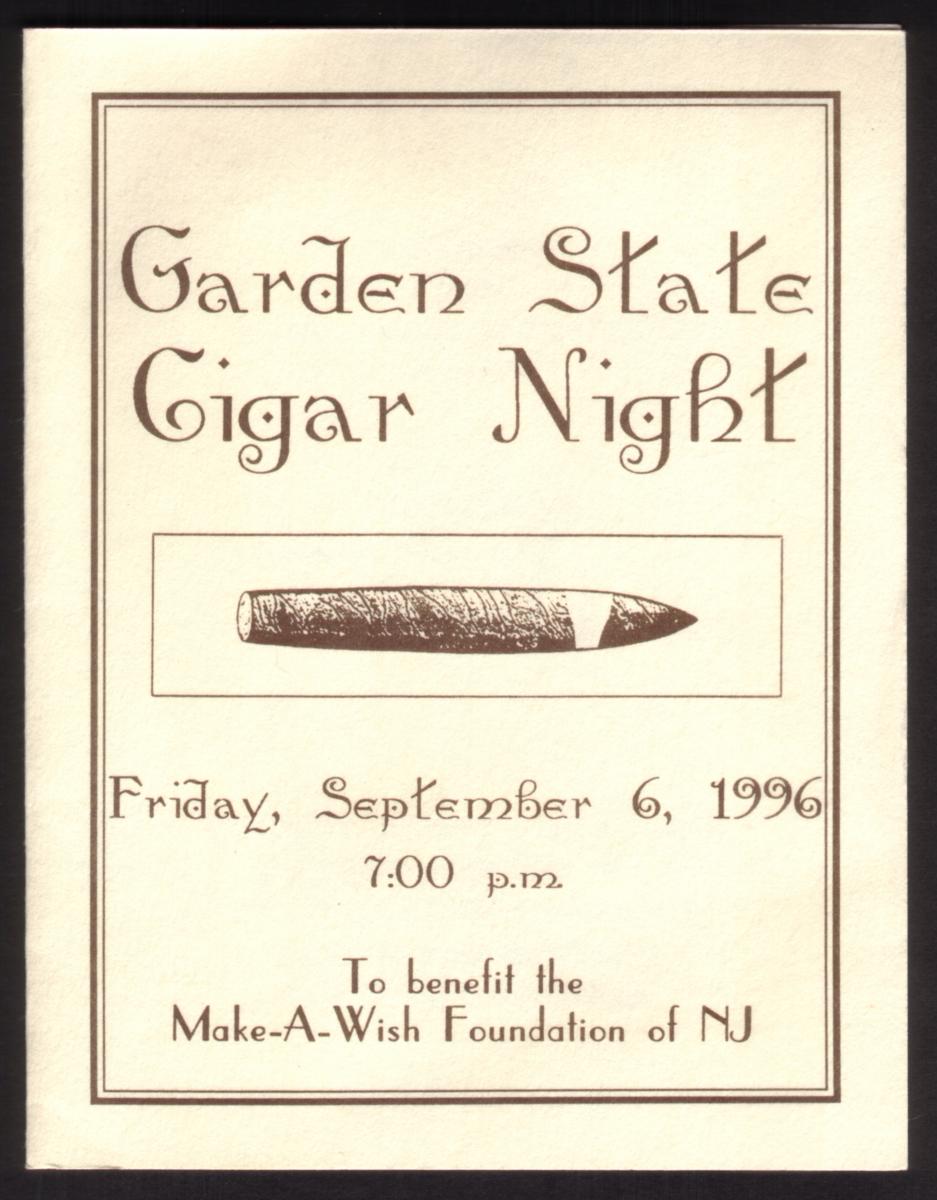 Garden State
Cigar Night
Friday, September 6, 1996
7:00 p.m.
To benefit the
Make-A-Wish Foundation of NJ